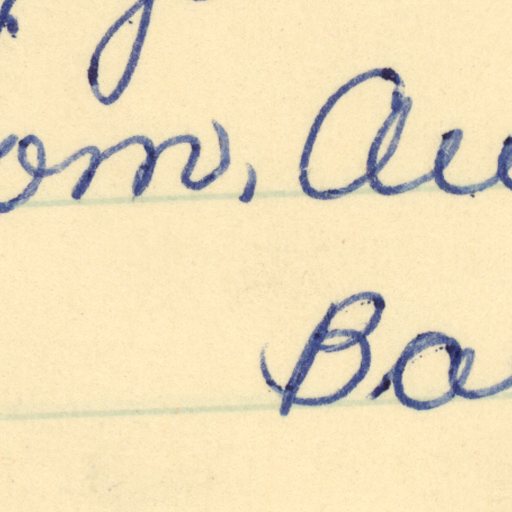 om, Au
Ba